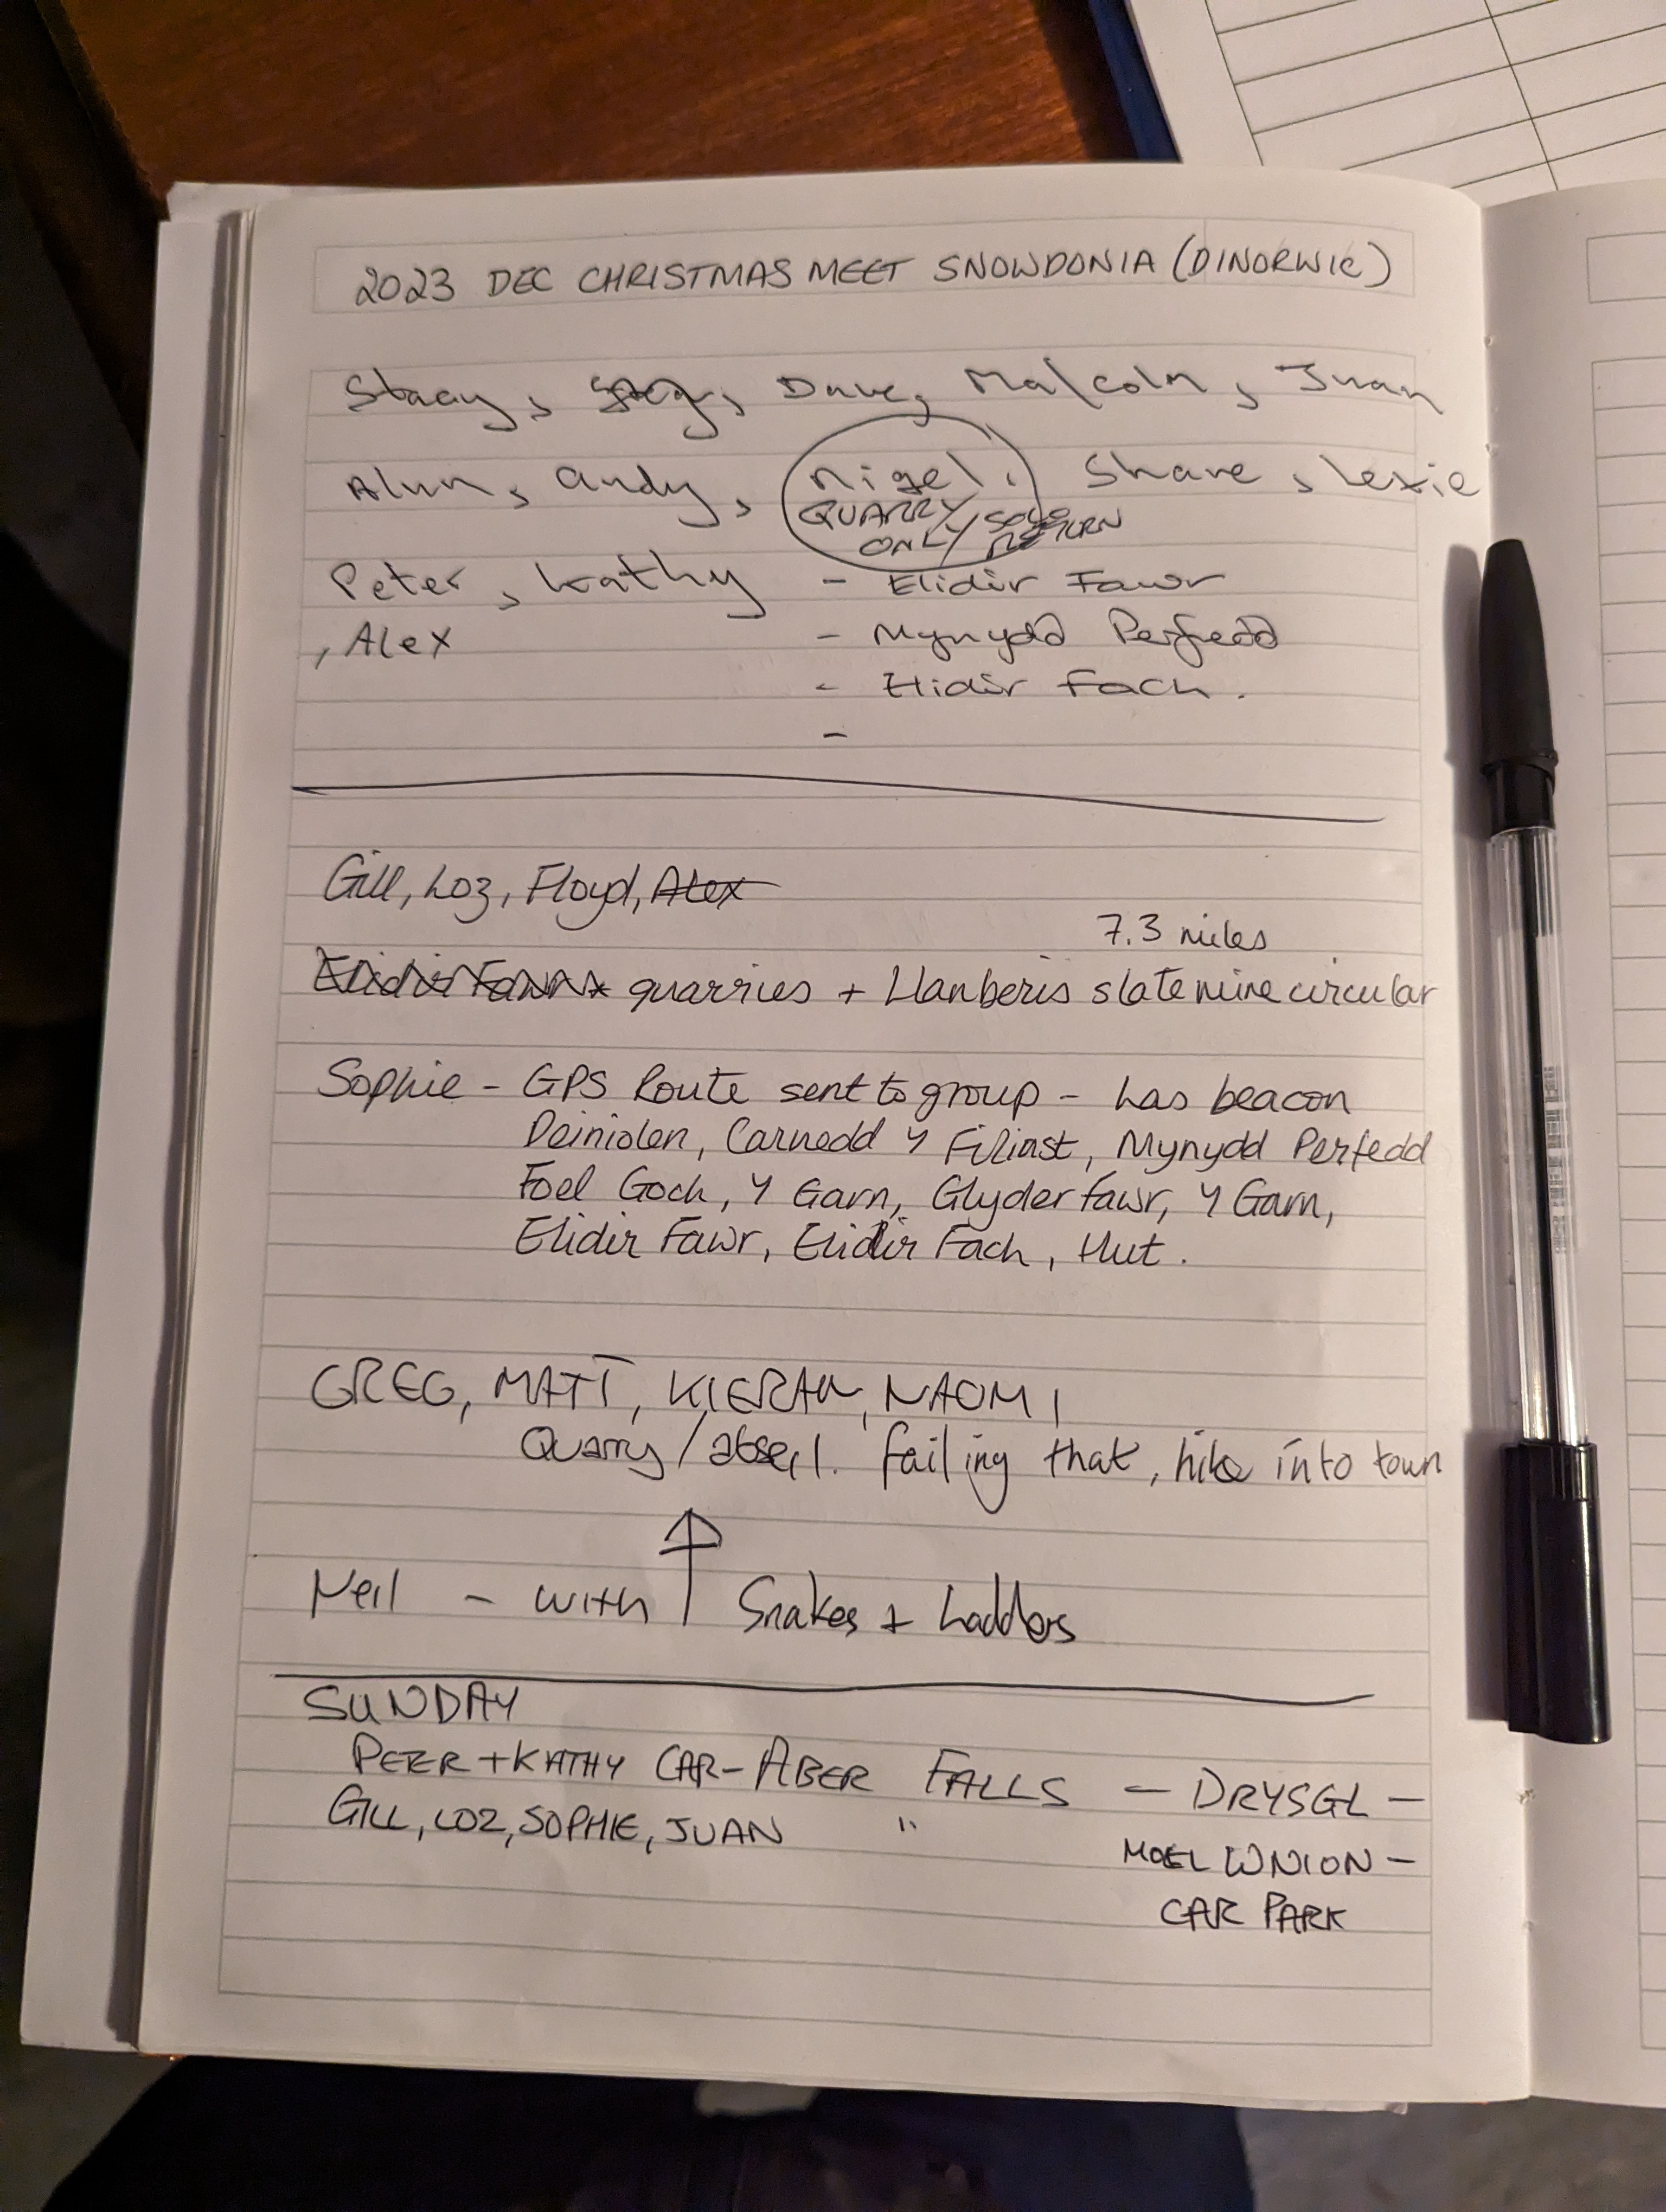 2023 DEC CHRISTMAS MEET SNOWDONIA (DINORWIC)
Stacy, Dave, Malcolm, Juan
Alun, Andy, Nigel, Shane, Lexie
QUARRY ONLY / SOLO RETURN
Peter, Kathy - Elidir Fawr
, Alex - Mynydd Perfedd
- Elidir Fach.
-
Gill, Loz, Floyd, Alex
7.3 miles
Elidir Fawr quarries + Llanberis slate mine circular
Sophie - GPS Route sent to group - has beacon
Deiniolen, Carnedd y Filiast, Mynydd Perfedd
Foel Goch, Y Garn, Glyder Fawr, Y Garn,
Elidir Fawr, Elidir Fach, Hut.
GREG, MATT, KIERAN, NAOMI
Quarry / abseil. failing that, hike into town
Neil - with ↑ Snakes + Ladders
SUNDAY
PETER + KATHY CAR - ABER FALLS - DRYSGL -
GILL, LOZ, SOPHIE, JUAN "
MOEL WNION -
CAR PARK